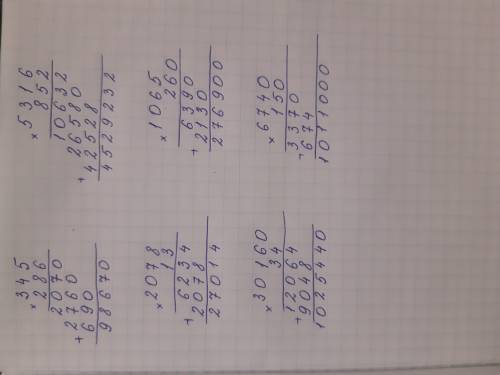 ×345
286
2070
+2760
690
98670
×5316
852
10632
26580
+42528
4529232
×2078
13
6234
+2078
27014
×1065
260
6390
+2130
276900
×30160
34
12064
+9048
1025440
×6740
150
3370
+674
1011000